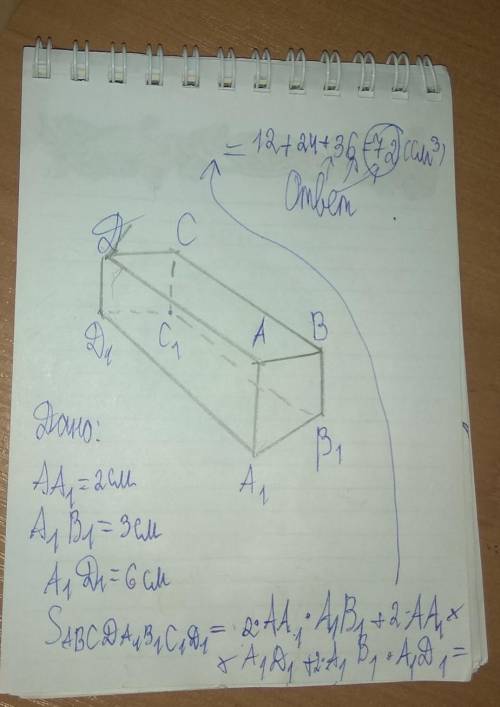 = 12+24+36=72(см³)
Ответ
Д C
Д₁ C₁ A B
A₁ B₁
Дано:
AA₁=2см
A₁B₁=3см
A₁Д₁=6см
S_ABCDA₁B₁C₁D₁= 2·AA₁·A₁B₁+2·AA₁×
× A₁D₁+2·A₁B₁·A₁D₁=